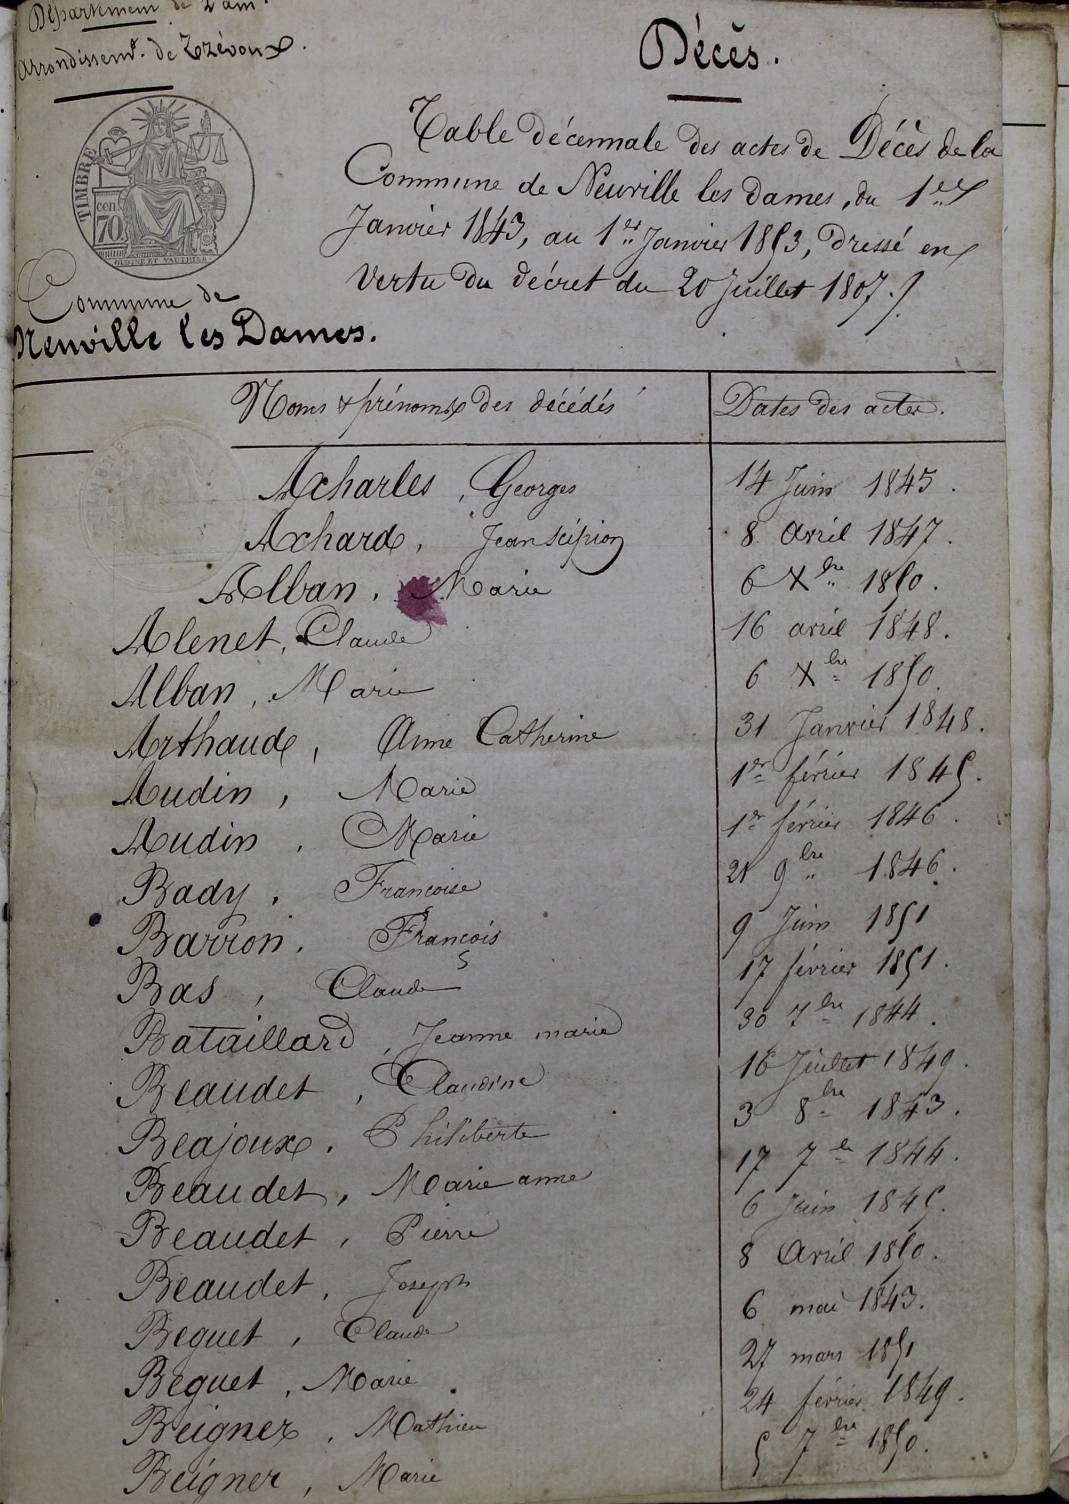 Département de l'ain.
arrondissemt. de Trévoux.
Décès.
TIMBRE
cen. 70
OUDINE ET VAUTHIER
Table décennale des actes de Décès de la
Commune de Neuville les Dames, du 1er
Janvier 1843, au 1er Janvier 1853, dressé en
vertu du décret du 20 Juillet 1807.
Commune de
Neuville les Dames.
Noms & prénoms des décédés Dates des actes.
Acharles, Georges 14 Juin 1845.
Achard, Jean Scipion 8 Avril 1847.
Alban, Marie 6 Xbre 1850.
Alenet, Claude 16 avril 1848.
Alban, Marie 6 Xbre 1850.
Arthaud, Anne Catherine 31 Janvier 1848.
Audin, Marie 1er février 1845.
Audin, Marie 1er février 1846.
Bady, Francoise 21 9bre 1846.
Barron, François 9 Juin 1851
Bas, Claude 17 février 1851.
Bataillard, Jeanne marie 30 7bre 1844.
Beaudet, Claudine 16 Juillet 1849.
Beajoux, Philiberte 3 8bre 1843.
Beaudet, Marie anne 17 7bre 1844.
Beaudet, Pierre 6 Juin 1845.
Beaudet, Joseph 8 Avril 1850.
Beguet, Claude 6 mai 1843.
Beguet, Marie 27 mars 1851
Beigner, Mathieu 24 février 1849.
Beigner, Marie 5 7bre 1850.